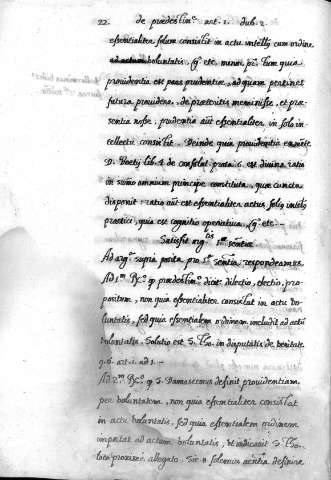 22. de prædestin.ᵉ art. 1. dub. 2.
essentialiter solum consistit in actu intellꝫ cum ordine
ad actum voluntatis, q̃ etc. maior pꝫ. Tum quia
providentia est pars prudentiæ, ad quam pertinet
futura providere, de præteritis meminisse, et præ-
sentia nosse, prudentia aut̃ essentialiter in solo in-
tellectu consistit. Deinde quia providentia
D. Boetij lib. 4. de consolat. prosa. 6. est divina ratio
in sumo omnium principe constituta, quæ cuncta
disponit: ratio aũt est essentialiter actus solꝫ intellꝫ
practici, quia est cognitio operativa, q̃ etc. –
Satisfit argᵗⁱˢ 1ᵃᵉ sentiæ
Ad argᵃ supra posita pro 1ᵃ sentia respondeamus.
Ad 1ᵐ Rꝫ.ᵒ q̃ prædestinᵒ dicitꝫ dilectio, electio, pro-
positum, non quia essentialiter consistat in actu vo-
luntatis, sed quia essentialem ordinem includit ad actũ
voluntatis. Solutio est S. Tho. in disputatis de veritate
q. 6. art. 1. ad 1. –
Ad 2ᵐ Rꝫ.ᵒ q̃ S. Damascenus definit providentiam
per voluntatem, non quia essentialiter consistat
in actu voluntatis, sed quia essentialem ordinem
importat ad actum voluntatis, ut indicavit S. Tho.
loco proxime allegato. Sic solemus definire